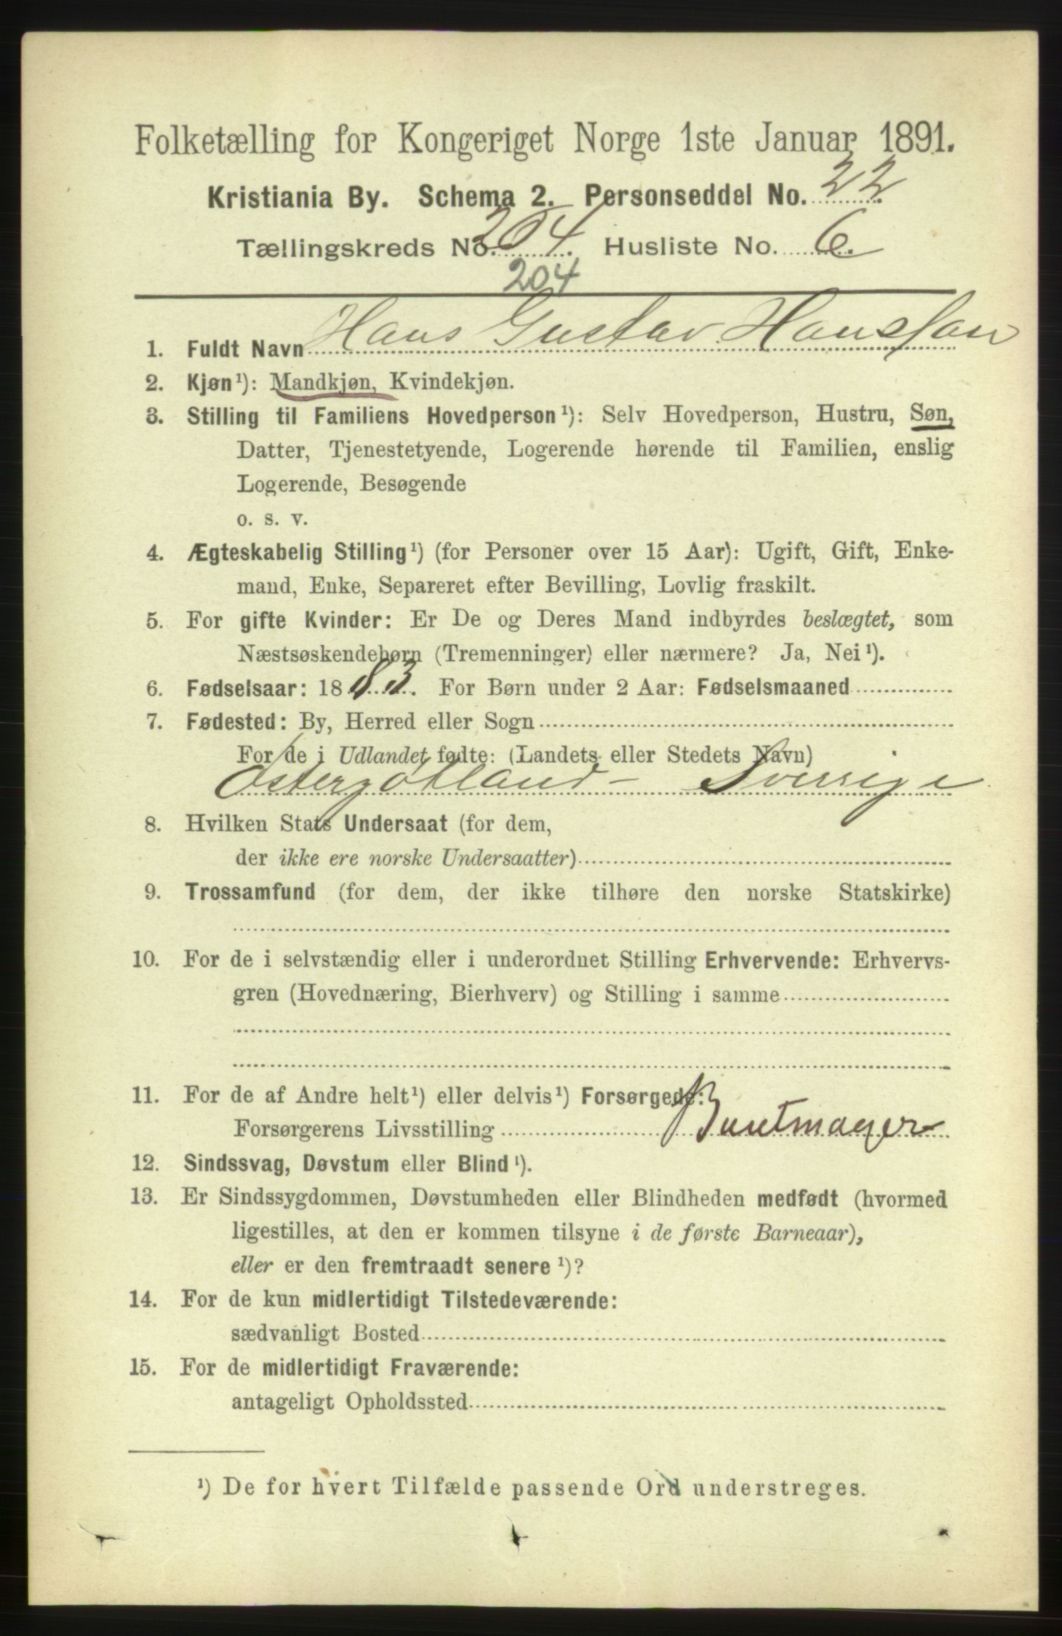 Folketælling for Kongeriget Norge 1ste Januar 1891.
Kristiania By. Schema 2. Personseddel No. 22
Tællingskreds No. 204. Husliste No. 6.
204
1. Fuldt Navn Hans Gustav Hansson
2. Kjøn¹): Mandkjøn, Kvindekjøn.
3. Stilling til Familiens Hovedperson¹): Selv Hovedperson, Hustru, Søn,
Datter, Tjenestetyende, Logerende hørende til Familien, enslig
Logerende, Besøgende
o. s. v.
4. Ægteskabelig Stilling¹) (for Personer over 15 Aar): Ugift, Gift, Enke-
mand, Enke, Separeret efter Bevilling, Lovlig fraskilt.
5. For gifte Kvinder: Er De og Deres Mand indbyrdes beslægtet, som
Næstsøskendebørn (Tremenninger) eller nærmere? Ja, Nei¹).
6. Fødselsaar: 1883. For Børn under 2 Aar: Fødselsmaaned
7. Fødested: By, Herred eller Sogn
For de i Udlandet fødte: (Landets eller Stedets Navn)
Östergötland - Sverrige
8. Hvilken Stats Undersaat (for dem,
der ikke ere norske Undersaatter)
9. Trossamfund (for dem, der ikke tilhøre den norske Statskirke)
10. For de i selvstændig eller i underordnet Stilling Erhvervende: Erhvervs-
gren (Hovednæring, Bierhverv) og Stilling i samme
11. For de af Andre helt¹) eller delvis¹) Forsørgede:
Forsørgerens Livsstilling Buntmager
12. Sindssvag, Døvstum eller Blind¹).
13. Er Sindssygdommen, Døvstumheden eller Blindheden medfødt (hvormed
ligestilles, at den er kommen tilsyne i de første Barneaar),
eller er den fremtraadt senere¹)?
14. For de kun midlertidigt Tilstedeværende:
sædvanligt Bosted
15. For de midlertidigt Fraværende:
antageligt Opholdssted
¹) De for hvert Tilfælde passende Ord understreges.